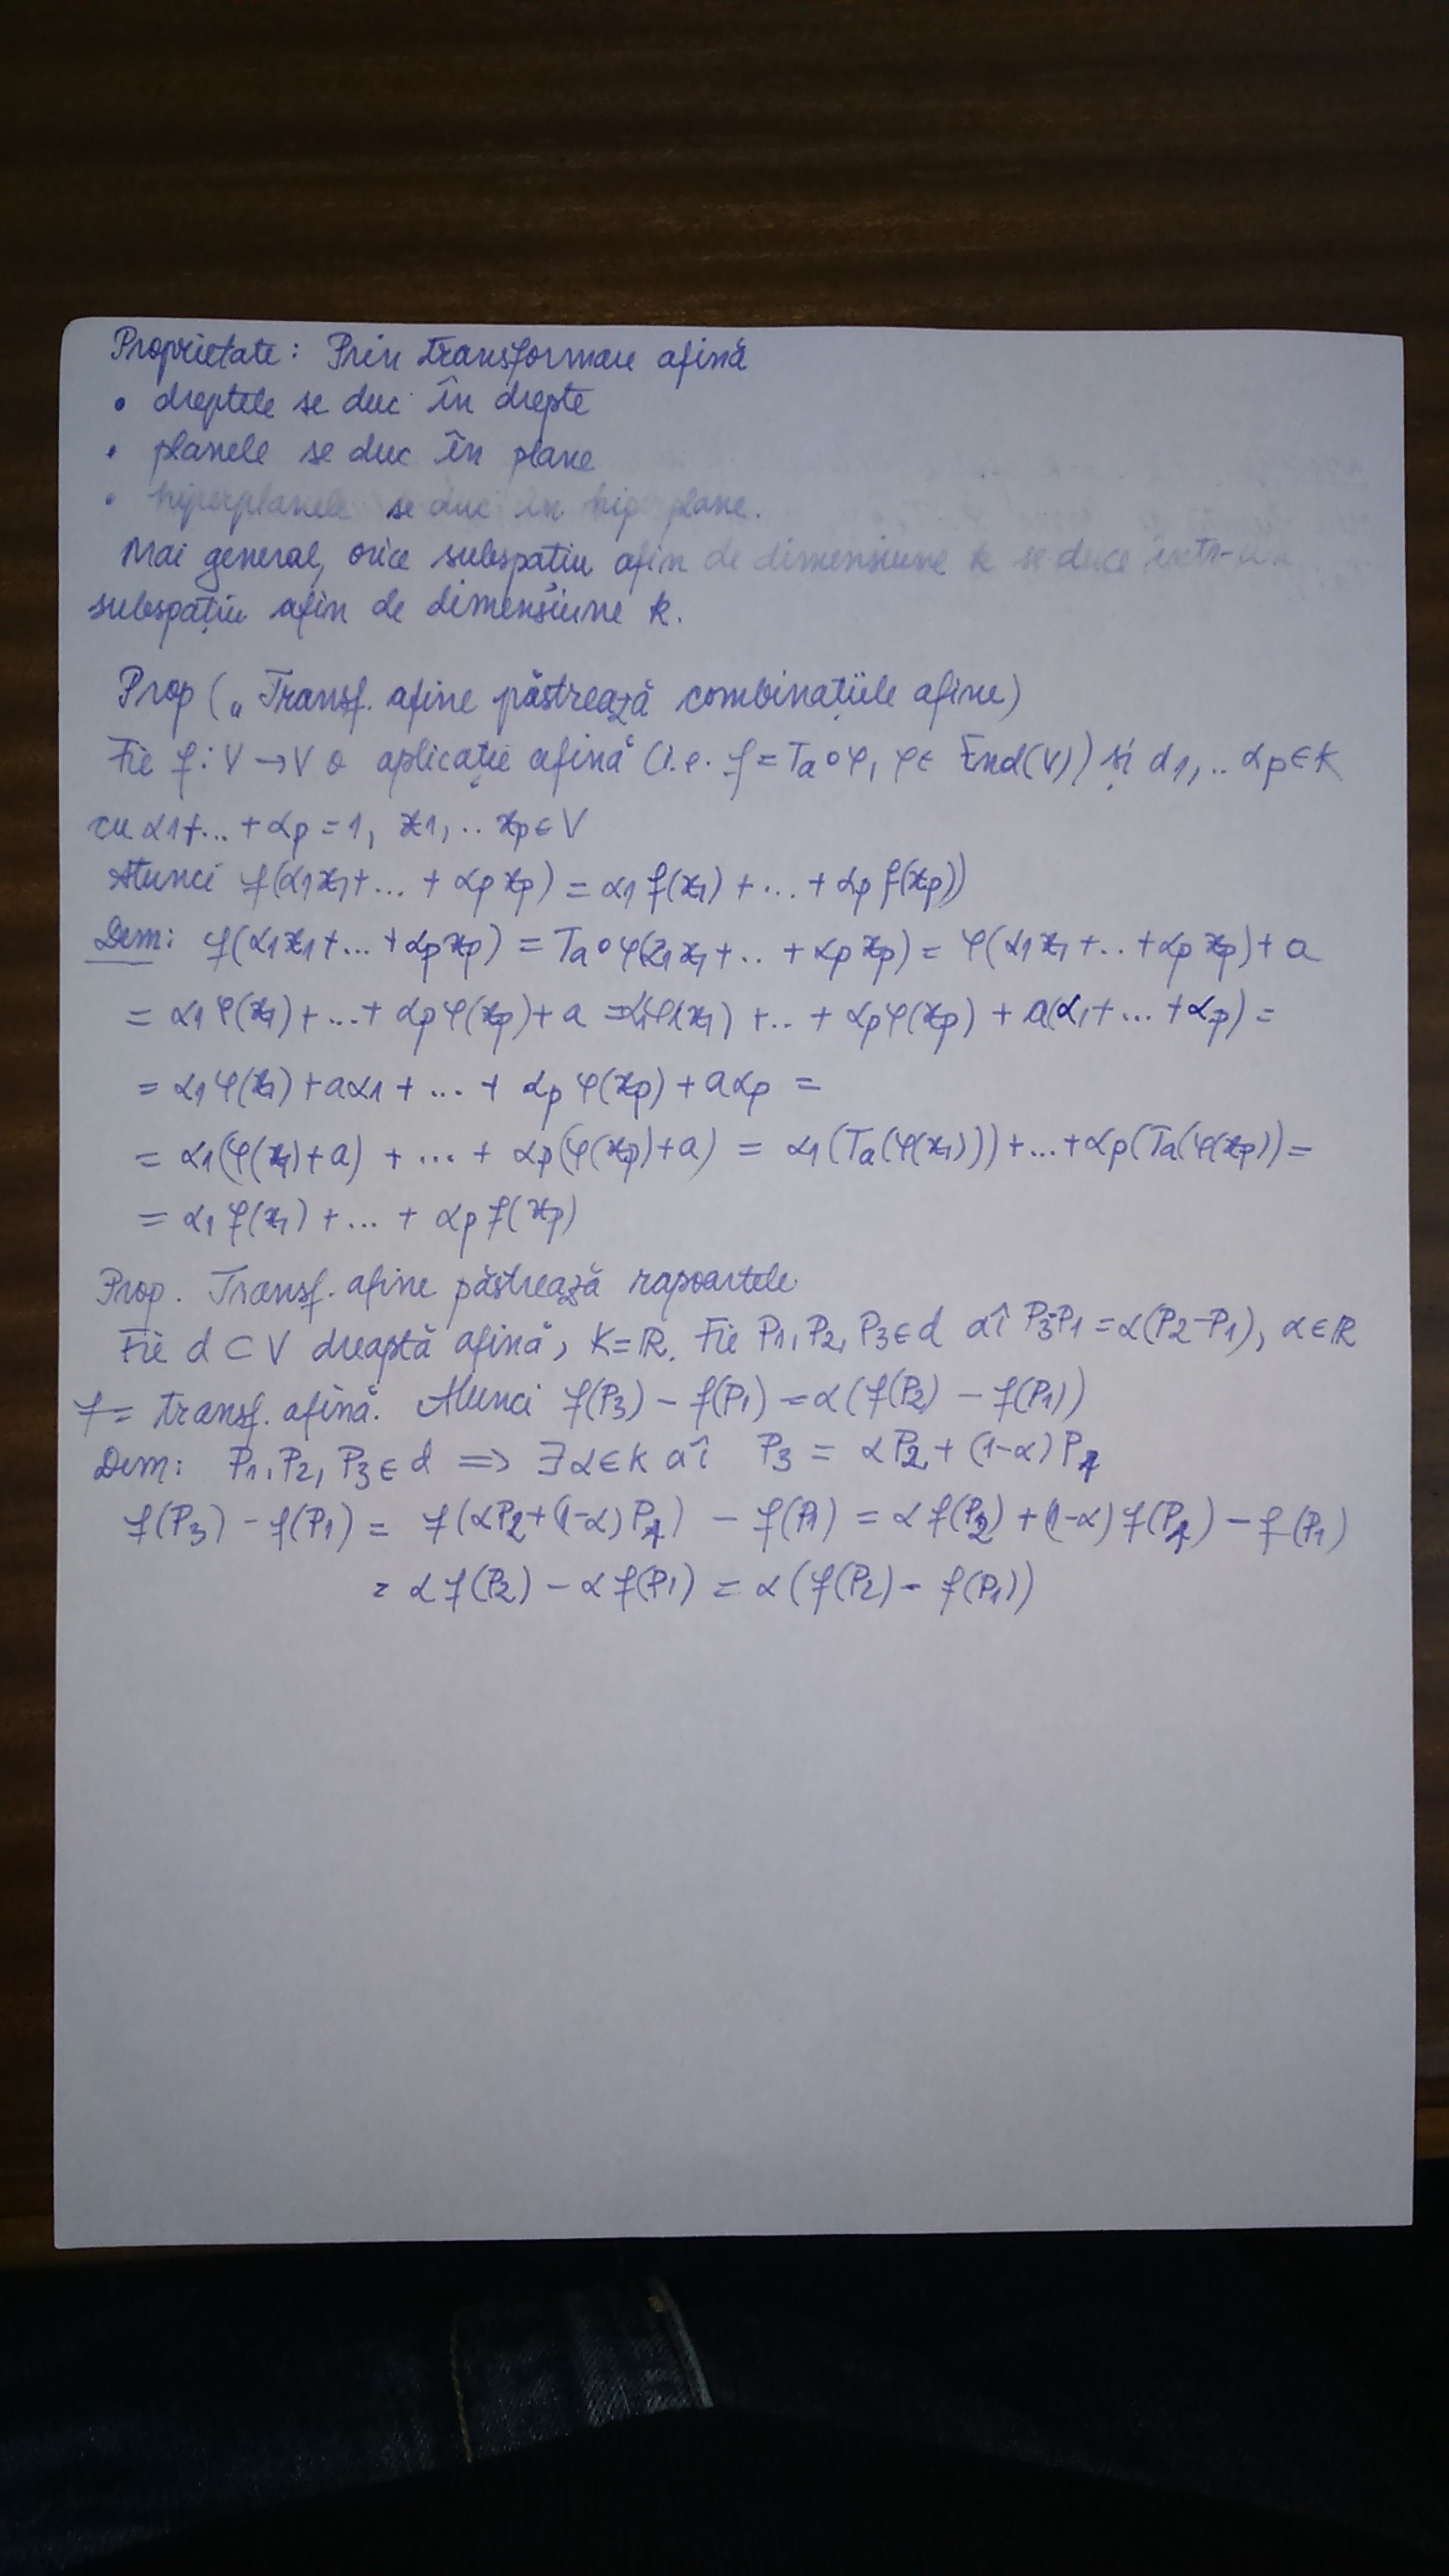 Proprietate: Prin transformare afină
• dreptele se duc în drepte
• planele se duc în plane
• hiperplanele se duc în hiperplane.
Mai general, orice subspațiu afin de dimensiune k se duce într-un
subspațiu afin de dimensiune k.
Prop („Transf. afine păstrează combinațiile afine)
Fie f: V → V o aplicație afină (i.e. f = Ta∘φ, φ ∈ End(V)) și α1, .. αp ∈ K
cu α1+... + αp = 1, x1, .. xp ∈ V
Atunci f(α1x1+... + αp xp) = α1 f(x1) + ... + αp f(xp))
Dem: f(α1x1+... +αpxp) = Ta∘φ(α1x1+.. + αp xp) = φ(α1x1+..+αp xp)+a
= α1φ(x1)+...+ αpφ(xp)+a = α1φ(x1) +.. + αpφ(xp) + a(α1+...+αp) =
= α1φ(x1)+aα1+ ... + αp φ(xp)+aαp =
= α1(φ(x1)+a) + ... + αp(φ(xp)+a) = α1(Ta(φ(x1)))+...+αp(Ta(φ(xp)) =
= α1 f(x1) + ... + αp f(xp)
Prop. Transf. afine păstrează rapoartele
Fie d ⊂ V dreaptă afină, K=ℝ. Fie P1, P2, P3 ∈ d aî P3-P1 = α(P2-P1), α∈ℝ
f = transf. afină. Atunci f(P3) - f(P1) = α(f(P2) - f(P1))
Dem: P1, P2, P3 ∈ d ⇒ ∃ α∈K aî P3 = αP2 + (1-α)P1
f(P3) - f(P1) = f(αP2+(1-α)P1) - f(P1) = αf(P2)+(1-α)f(P1) - f(P1)
= αf(P2) - αf(P1) = α(f(P2) - f(P1))